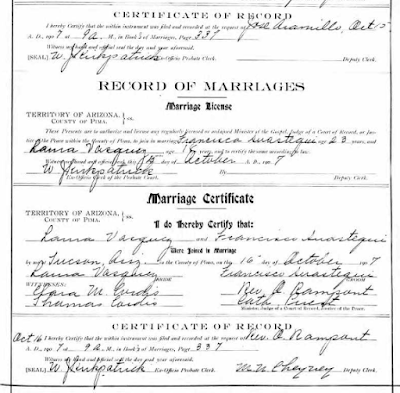 CERTIFICATE OF RECORD
I hereby Certify that the within instrument was filed and recorded at the request of Jose Jaramillo, Oct 15
A. D., 1907 at 9 a. M., in Book 5 of Marriages, Page 337
Witness my hand and official seal the day and year aforesaid.
[SEAL] W. J. Kirkpatrick Ex-Officio Probate Clerk. Deputy Clerk.
RECORD OF MARRIAGES
Marriage License
TERRITORY OF ARIZONA, } ss.
COUNTY OF PIMA.
These Presents are to authorize and license any regularly licensed or ordained Minister of the Gospel, Judge of a Court of Record, or Justice
of the Peace within the County of Pima, to join in marriage Francisco age 23 years, and
Laura Vasquez age years, and to certify the same according to law.
October A. D. 1907
W. J. Kirkpatrick By
Ex-Officio Clerk of the Probate Court. Deputy Clerk.
Marriage Certificate
TERRITORY OF ARIZONA, } ss.
COUNTY OF PIMA.
I do Hereby Certify that:
Laura Vasquez and Francisco
Were Joined in Marriage
by me in Tucson, Ariz. County of Pima, on the 16 day of October 1907
Laura Vasquez BRIDE Francisco GROOM
WITNESSES:
Clara M. Rev. O. Rampont
Thomas Cath. Priest
Minister, Judge of a Court of Record, Justice of the Peace.
CERTIFICATE OF RECORD
Oct 16 I hereby Certify that the within instrument was filed and recorded at the request of Rev. O. Rampont
A. D., 1907 at 9 a. M., in Book 5 of Marriages, Page 337
Witness my hand and official seal the day and year aforesaid.
[SEAL] W. J. Kirkpatrick Ex-Officio Probate Clerk. M. N. Cheyney Deputy Clerk.